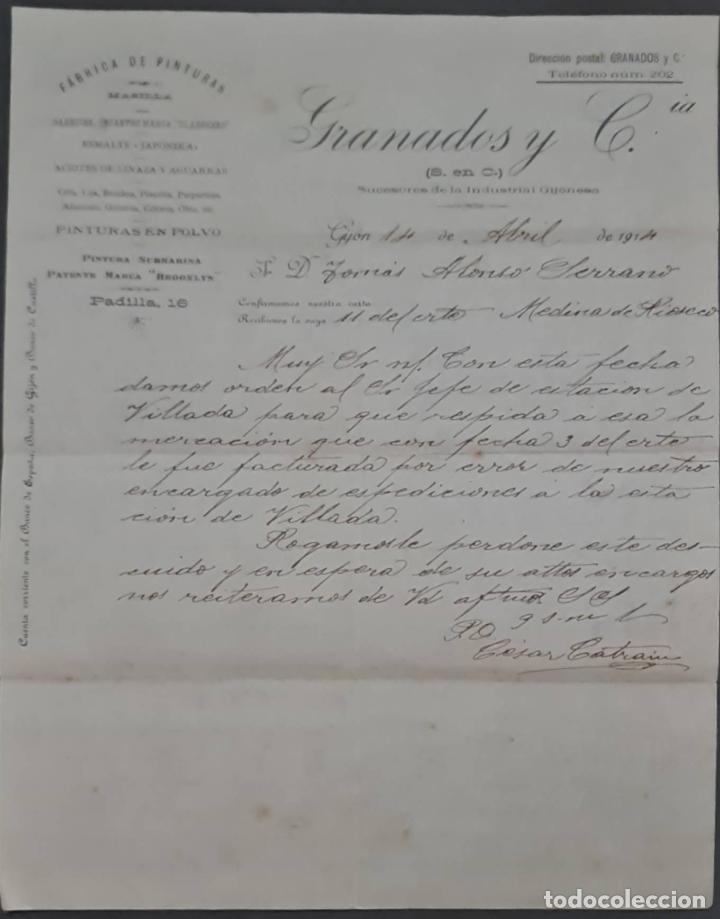 FÁBRICA DE PINTURAS
MASILLA
ESMALTE "JAPONIKA"
ACEITES DE LINAZA Y AGUARRÁS
Cola, Lija, Brochas, Pinceles, Purpurinas,
PINTURAS EN POLVO
PINTURA SUBMARINA
PATENTE MARCA "BROOKLYN"
Padilla, 16
Dirección postal: GRANADOS y C.ª
Teléfono núm. 202
Granados y C.ia
(S. en C.)
Sucesores de la Industrial Gijonesa
Gijón 14 de Abril de 1914
S. D. Tomás Alonso Serrano
Confirmamos nuestra carta
Recibimos la suya 11 del crte Medina de Rioseco
Muy Sr nf. Con esta fecha
damos orden al Sr Jefe de estacion de
Villada para que respida á esa la
mercación que con fecha 3 del crte
le fue facturada por error de nuestro
encargado de espediciones á la esta
ción de Villada.
Rogamosle perdone este des-
cuido y en espera de su attos encargos
nos reiteramos de Vd aftmos SS
q s. m b
P.O
César
Cuenta corriente con el Banco de España, Banco de Gijón y Banco de Castilla.
todocoleccion